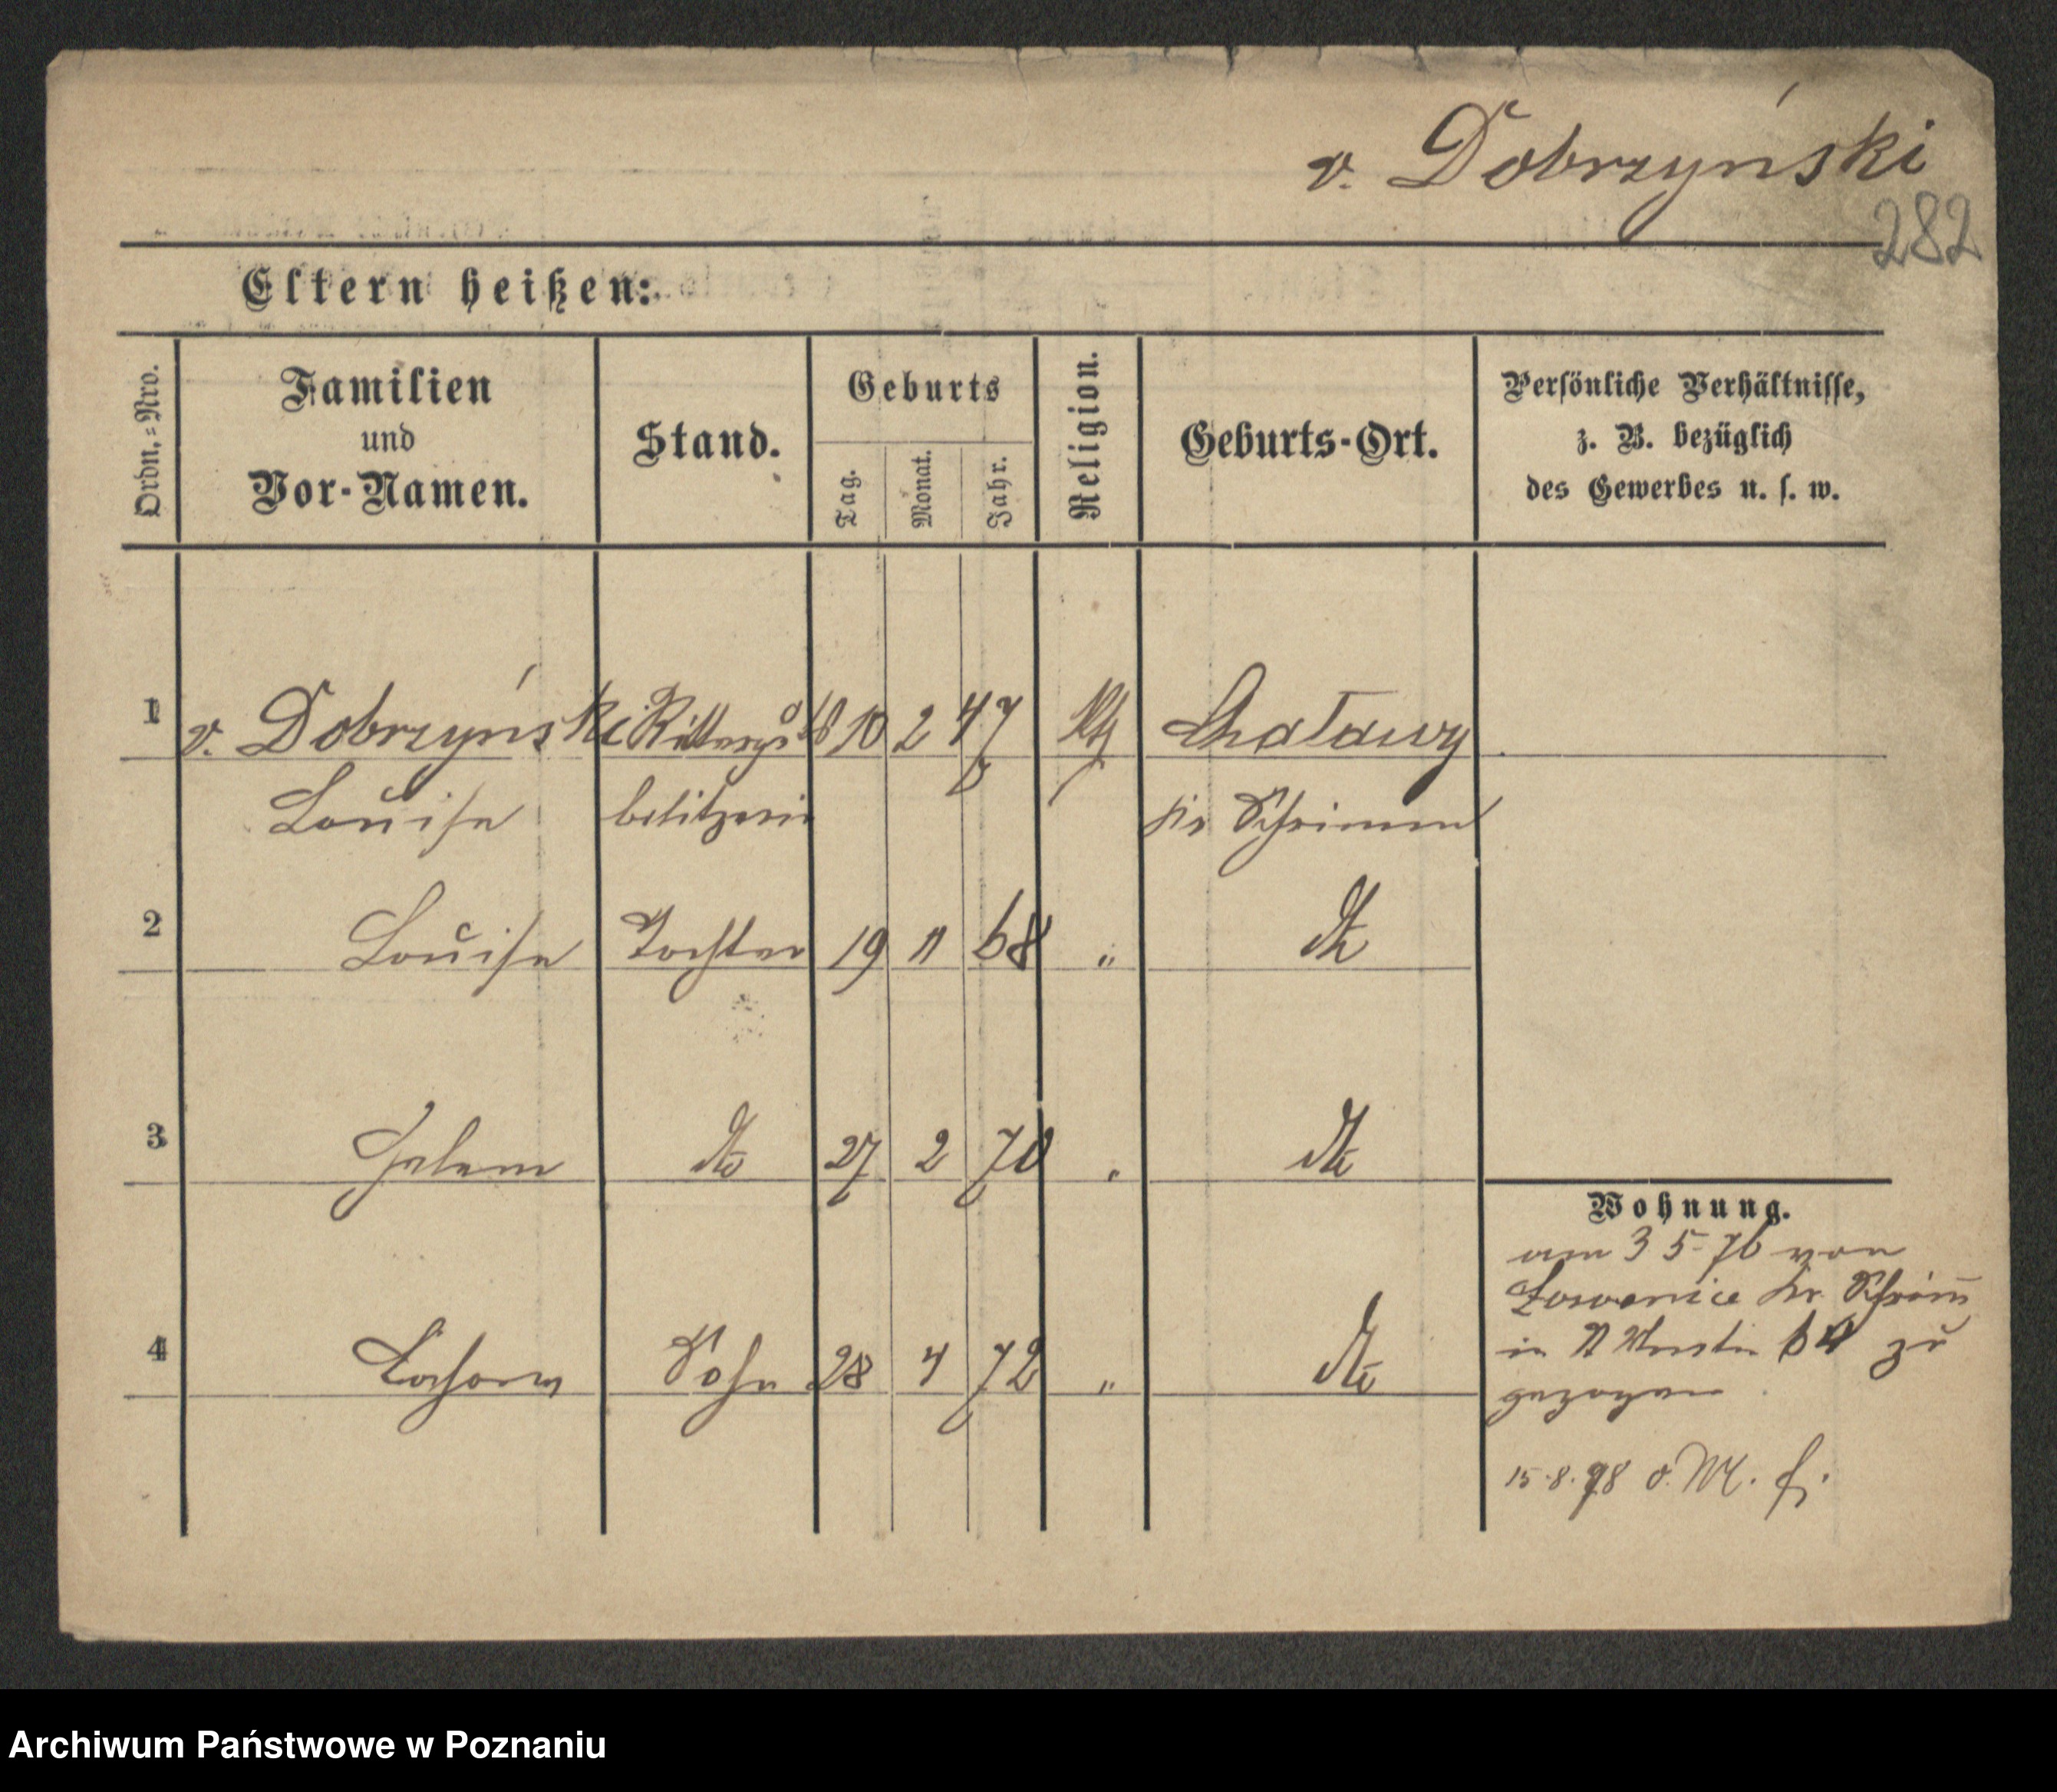 v. Dobrzyński
282
Eltern heißen:
Ordn.=Nro.
Familien
und
Vor-Namen.
Stand.
Geburts
Tag.
Monat.
Jahr.
Religion.
Geburts-Ort.
Persönliche Verhältnisse,
z. B. bezüglich
des Gewerbes u. s. w.
1 v. Dobrzyński 10 2 47 Chaławy
Louise besitzerin Kr Schrimm
2 Louise Tochter 19 11 68 " dto
3 Helene dto 27 2 70 " dto
Wohnung.
am 3 5 76 von
Kr Schrim
4 Sohn 28 4 72 " dto
in zu
gezogen
15.8.98
Archiwum Państwowe w Poznaniu